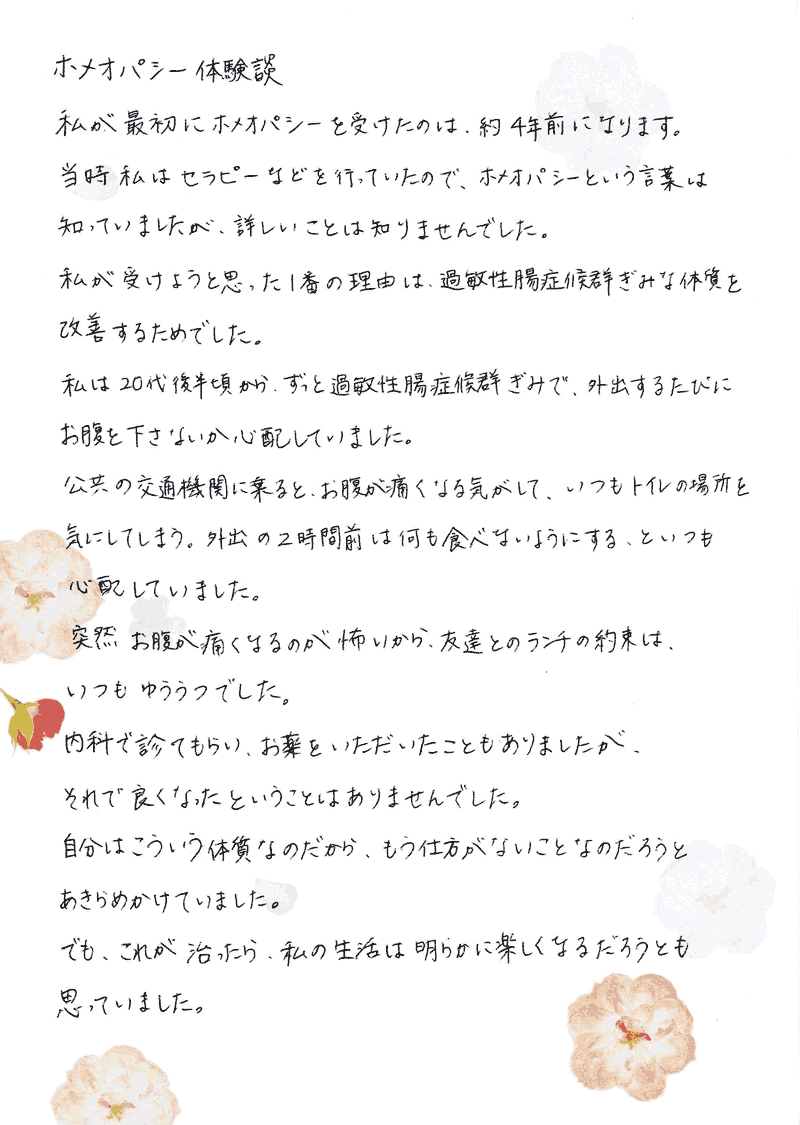 ホメオパシー体験談
私が最初にホメオパシーを受けたのは、約4年前になります。
当時私はセラピーなどを行っていたので、ホメオパシーという言葉は
知っていましたが、詳しいことは知りませんでした。
私が受けようと思った1番の理由は、過敏性腸症候群ぎみな体質を
改善するためでした。
私は20代後半頃から、ずっと過敏性腸症候群ぎみで、外出するたびに
お腹を下さないか心配していました。
公共の交通機関に乗ると、お腹が痛くなる気がして、いつもトイレの場所を
気にしてしまう。外出の2時間前は何も食べないようにする、といつも
心配していました。
突然お腹が痛くなるのが怖いから、友達とのランチの約束は、
いつもゆううつでした。
内科で診てもらい、お薬をいただいたこともありましたが、
それで良くなったということはありませんでした。
自分はこういう体質なのだから、もう仕方がないことなのだろうと
あきらめかけていました。
でも、これが治ったら、私の生活は明らかに楽しくなるだろうとも
思っていました。